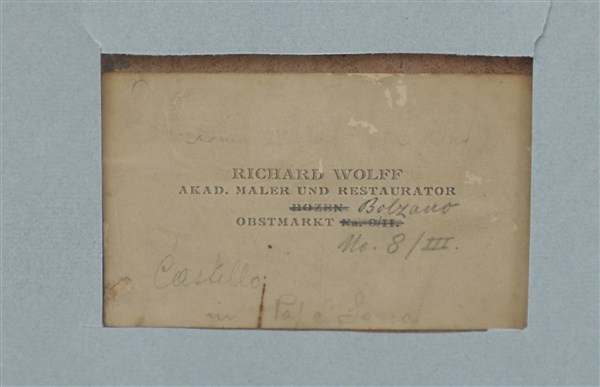 RICHARD WOLFF
AKAD. MALER UND RESTAURATOR
BOZEN Bolzano
OBSTMARKT No. 9/II.
No. 8/III.
Castello
in